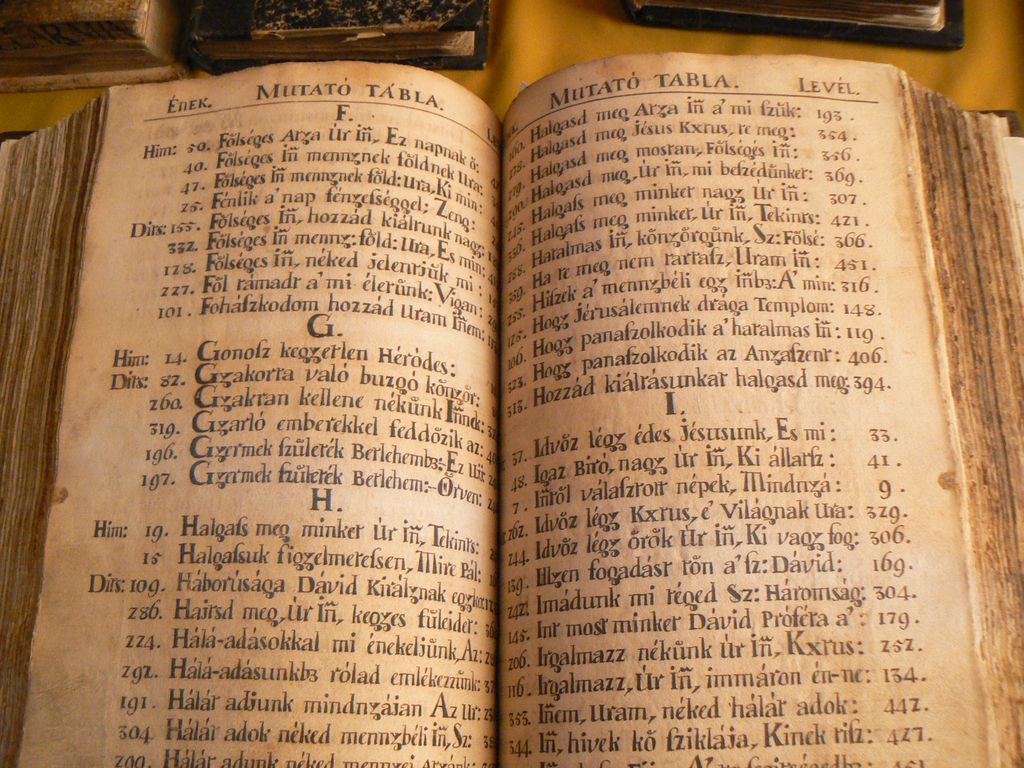 MUTATÓ TÁBLA.
Ének.
F.
Him: 50. Főlséges Arza Úr iñ, Ez napnak ő:
40. Főlséges iñ mennynek főldnek Ura:
47. Főlséges iñ mennynek főld: Ura, Ki min:
25. Fénlik a' nap fényeſséggel; Zeng:
Dits: 155. Főlséges iñ, hozzád kiáltunk nagy:
332. Főlséges iñ menny: főld: Ura, Es min:
128. Főlséges iñ, néked jelentjük mi:
227. Fől támadt a' mi életünk: Vigan:
101. Foháſzkodom hozzád Uram iñem:
G.
Him: 14. Gonoſz kegyetlen Héródes:
Dits: 82. Gyakorta való buzgó kőnyőr:
260. Gyakran kellene nékünk iñnek:
319. Gyarló emberekkel feddőzik az:
196. Gyermek ſzületék Betlehemb3: Ez
197. Gyermek ſzületék Betlehem: Őrven:
H.
Him: 19. Halgaſs meg minket Úr iñ, Tekints:
15 Halgaſsuk figyelmeteſsen, Mire Pál:
Dits: 109. Háborúsága Dávid Királynak
286. Haitsd meg, Úr iñ, kegyes füleidet:
224. Hálá-adásokkal mi énekeljünk, Az:
292. Hálá-adásunkb3 rólad emlékezünk:
191. Hálát adjunk mindnyájan Az Úr:
304. Hálát adok néked mennybéli iñ, Sz:
299. Hálát adunk néked mennyei
MUTATÓ TABLA.
LEVÉL.
Halgasd meg Arza iñ a' mi ſzük: 193.
Halgasd meg Jésus Kxtus, te meg: 354.
Halgasd meg mostan, Főlséges iñ: 356.
Halgasd meg, Úr iñ, mi beſzédünket: 369.
Halgaſs meg minket nagy Úr iñ: 307.
Halgaſs meg minket, Úr iñ, Tekints: 421.
Hatalmas iñ, kőnyőrgünk, Sz: Főlsé: 366.
Ha te meg nem tartaſz, Uram iñ: 451.
Hiſzek a' mennybéli egy iñb3: A' min: 316.
Hogy Jérusálemnek drága Templom: 148.
106. Hogy panaſzolkodik a' hatalmas iñ: 119.
323. Hogy panaſzolkodik az Anyaſzent: 406.
313. Hozzád kiáltásunkat halgasd meg: 394.
I.
37. Idvőz légy édes Jésusunk, Es mi: 33.
48. Igaz Biró, nagy Úr iñ, Ki állaſz: 41.
7. iñtől válaſztott népek, Mindnyá: 9.
262. Idvőz légy Kxtus, e' Világnak Ura: 329.
244. Idvőz légy őrők Úr iñ, Ki vagy fog: 306.
139. Illyen fogadást tőn a' ſz: Dávid: 169.
242. Imádunk mi téged Sz: Háromság: 304.
145. Int most minket Dávid Próféta a': 179.
206. Irgalmazz nékünk Úr iñ, Kxtus: 252.
116. Irgalmazz, Úr iñ, immáron én-ne: 134.
353. iñem, Uram, néked hálát adok: 442.
344. iñ, hivek kő ſziklája, Kinek tiſz: 427.